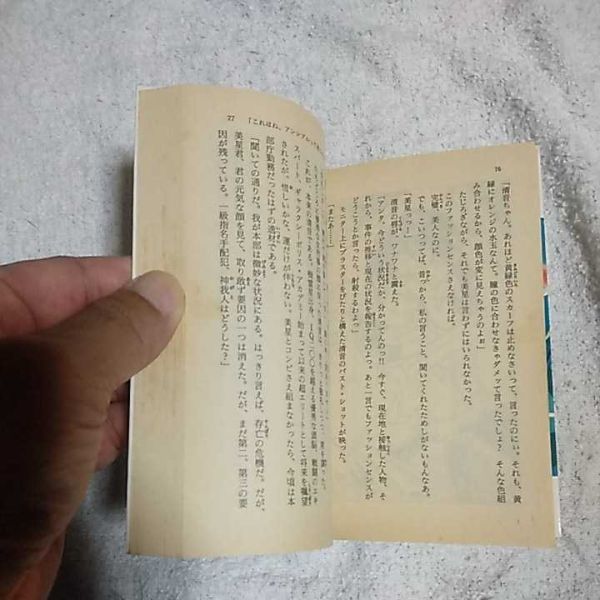 76
「清音ちゃん、あれほど黄緑色のスカーフは止めなさいって、言ったのにぃ。それも、黄
緑にオレンジの水玉なんて。瞳の色に合わせなきゃダメッて言ったでしょ? そんな色組
み合わせるから、顔色が変に見えちゃうのよぉ」
たじろぎながら、それでも美星は言わずにはいられなかった。
このファッションセンスさえなければ。
完璧、美人なのに。
でも、こいつってば、昔っから、私の言うこと、聞いてくれたためしがないもんなあ。
「美星っっ!」
清音の唇が、ワナワナと震えた。
「アンタ、今どういう状況だか、分かってんのっ!! 今すぐ、現在地と接触した人物、そ
れから、事件の推移と現在の状況を報告するのよっ。あと一言でもファッションセンスが
どうこうとか言ったら、射殺するわよっ」
モニター上にブラスターをぴたりと構えた清音のバスト・ショットが映った。
「またあ⋯⋯」
77 「これはね、アンシブルって
を超える優秀な頭脳、戦闘のエキ
スパート、ギャラクシーポリス・アカデミー始まって以来の超エリートとして将来を嘱望
されたが、惜しいかな、運だけが伴わない。美星とコンビさえ組まなかったら、今頃は本
部庁勤務だったはずの逸材である。
「聞いての通りだ。我が本部は微妙な状況にある。はっきり言えば、存亡の危機だ。だが、
美星君、君の元気な顔を見て、取り敢ず要因の一つは消えた。だが、まだ第二、第三の要
因が残っている。一級指名手配犯、神我人はどうした?」